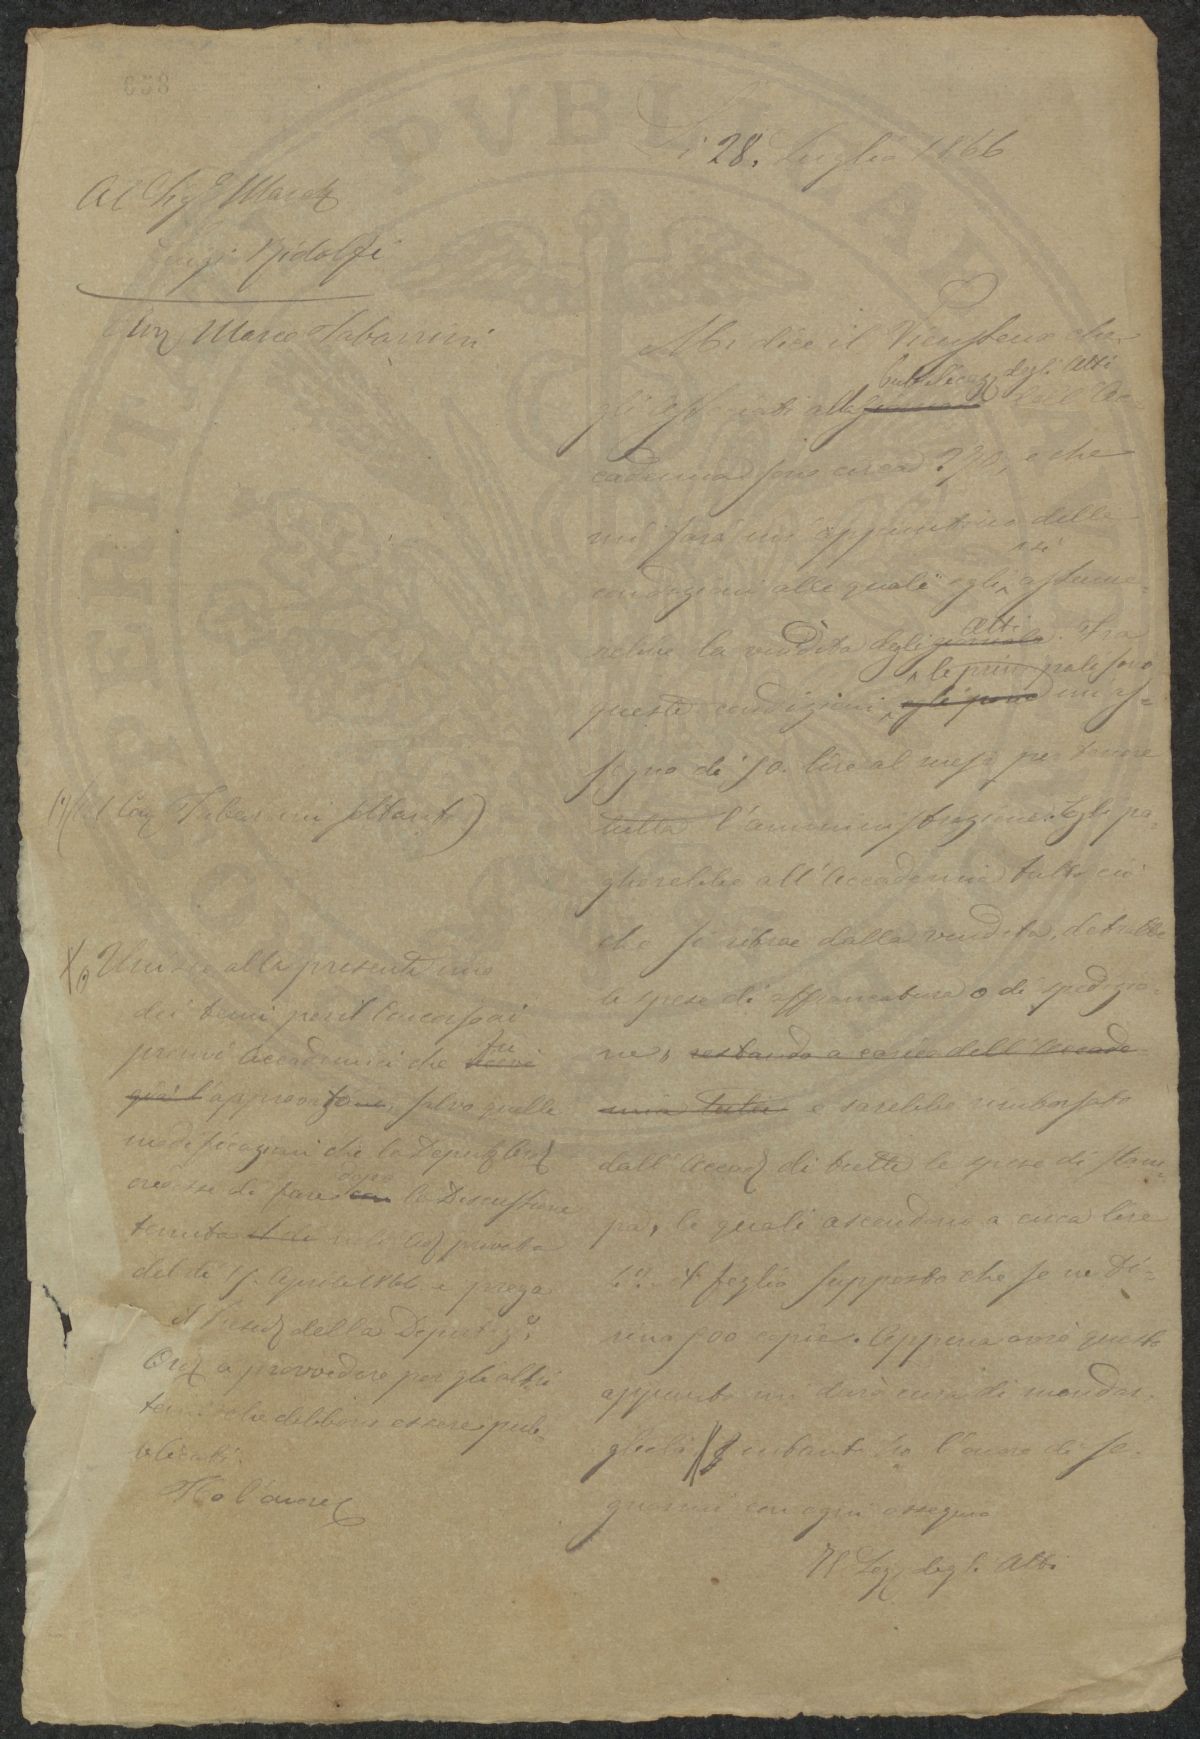 658
Lì 28. Luglio 1866
Al Sigr March
Luigi Ridolfi
Cav Marco Tabarrini
Mi dice il Vieusseux che
pubblicaz degli Atti
gli associati alla dell'Ac-
cademia sono circa 230, e che
mi farà un appuntino delle
condizioni alle quali egli si assume-
rebbe la vendita degli giornale Atti. Fra
queste condizioni egli pone le principali sono un as-
segno di 50. lire al mese per tenere
tutta l'amministrazione. Egli pa-
gherebbe all'Accademia tutto ciò
che si ritrae dalla vendita, detratte
le spese di affrancatura o di spedizio-
ne, restando a carico dell'Accade-
mia tutte e sarebbe rimborsato
dall'Accad di tutte le spese di stam-
pa, le quali ascendono a circa lire
il foglio supposto che se ne ti-
rino 500 copie. Appena avrò questo
appunto mi darò cura di mandar-
glielo intanto ho l'onore di se-
gnarmi con ogni ossequio
Il Seg degli Atti
(1) (al Cav Tabarrini soltanto)
Unisco alla presente uno
dei temi per il Concorso ai
premi Accademici che fu
approvato, salvo quelle
modificazioni che la Deputaz Ord
credesse di fare con dopo la Discussione
tenuta il dì nell'Ad privata
del dì 15. Aprile 1866. e prega
il Presid della Deputaz
Ord a provvedere per gli altri
temi che debbono essere pub-
blicati.
Ho l'onore